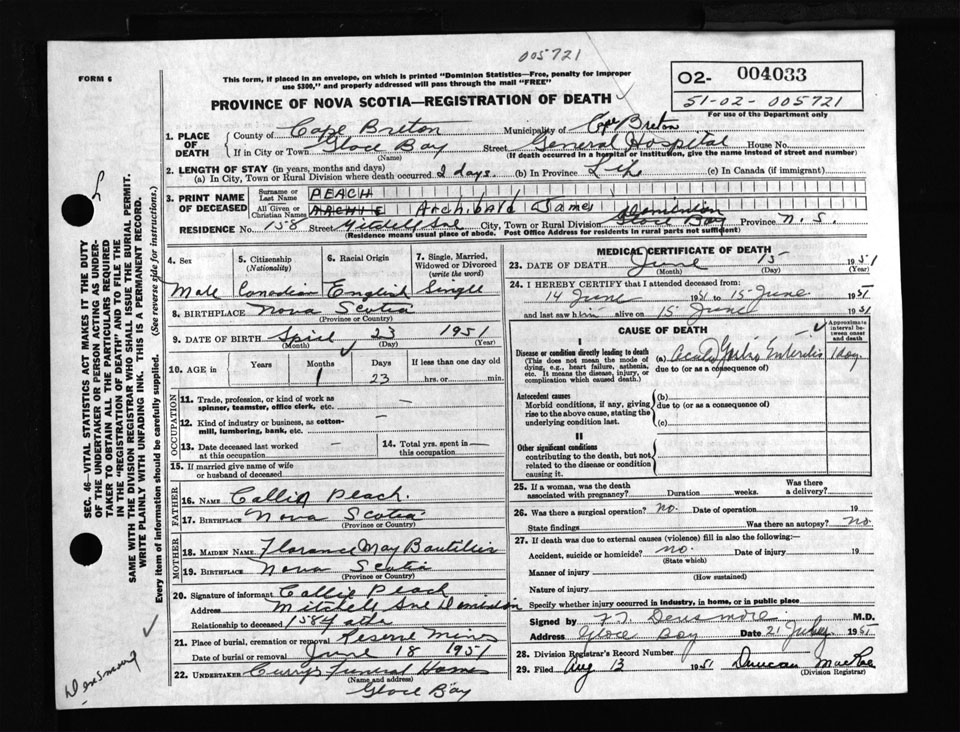 005721
FORM 6
This form, if placed in an envelope, on which is printed "Dominion Statistics—Free, penalty for improper
use $300," and properly addressed will pass through the mail "FREE"
O2- 004033
51-02-005721
For use of the Department only
PROVINCE OF NOVA SCOTIA—REGISTRATION OF DEATH
1. PLACE OF DEATH County of Cape Breton Municipality of Cape Breton
If in City or Town Glace Bay Street General Hospital House No.
(Name) (If death occurred in a hospital or institution, give the name instead of street and number)
2. LENGTH OF STAY (in years, months and days)
(a) In City, Town or Rural Division where death occurred 2 days. (b) In Province Life (c) In Canada (if immigrant)
3. PRINT NAME OF DECEASED Surname or Last Name PEACH
All Given or Christian Names ARCHIE Archibald James
RESIDENCE No. 158 Street City, Town or Rural Division Glace Bay Dominion Province N.S.
(Residence means usual place of abode. Post Office Address for residents in rural parts not sufficient)
4. Sex
Male
5. Citizenship
(Nationality)
Canadian
6. Racial Origin
English
7. Single, Married, Widowed or Divorced
(write the word)
Single
8. BIRTHPLACE Nova Scotia
(Province or Country)
9. DATE OF BIRTH April 23 1951
(Month) (Day) (Year)
10. AGE in Years Months Days If less than one day old
1 23 hrs. or min.
OCCUPATION
11. Trade, profession, or kind of work as
spinner, teamster, office clerk, etc. —
12. Kind of industry or business, as cotton-
mill, lumbering, bank, etc. —
13. Date deceased last worked
at this occupation —
14. Total yrs. spent in
this occupation —
15. If married give name of wife
or husband of deceased
FATHER
16. NAME Callie Peach.
17. BIRTHPLACE Nova Scotia
(Province or Country)
MOTHER
18. MAIDEN NAME Florance May Boutilier
19. BIRTHPLACE Nova Scotia
(Province or Country)
20. Signature of informant Callie Peach
Address Mitchell Ave Dominion
Relationship to deceased 158
21. Place of burial, cremation or removal Reserve Mines
Date of burial or removal June 18 1951
22. UNDERTAKER Curry's Funeral Home
(Name and address)
Glace Bay
MEDICAL CERTIFICATE OF DEATH
23. DATE OF DEATH June 15 1951
(Month) (Day) (Year)
24. I HEREBY CERTIFY that I attended deceased from:
14 June 1951 to 15 June 1951
and last saw him alive on 15 June 1951
CAUSE OF DEATH
Approximate interval between onset and death
I
Disease or condition directly leading to death
(This does not mean the mode of
dying, e.g., heart failure, asthenia,
etc. It means the disease, injury, or
complication which caused death.)
(a) Acute Gastro Enteritis 1 day.
due to (or as a consequence of)
Antecedent causes
Morbid conditions, if any, giving
rise to the above cause, stating the
underlying condition last.
(b)
due to (or as a consequence of)
(c)
II
Other significant conditions
contributing to the death, but not
related to the disease or condition
causing it.
25. If a woman, was the death
associated with pregnancy? Duration weeks. Was there
a delivery?
26. Was there a surgical operation? no. Date of operation 19
State findings Was there an autopsy? no.
27. If death was due to external causes (violence) fill in also the following:—
Accident, suicide or homicide? no. Date of injury 19
(State which)
Manner of injury
(How sustained)
Nature of injury
Specify whether injury occurred in industry, in home, or in public place
Signed by Densmore. M.D.
Address Glace Bay Date 21 July 1951
28. Division Registrar's Record Number
29. Filed Aug 13 1951 Duncan MacRae
(Division Registrar)
SEC. 46—VITAL STATISTICS ACT MAKES IT THE DUTY
OF THE UNDERTAKER OR PERSON ACTING AS UNDER-
TAKER TO OBTAIN ALL THE PARTICULARS REQUIRED
IN THE "REGISTRATION OF DEATH" AND TO FILE THE
SAME WITH THE DIVISION REGISTRAR WHO SHALL ISSUE THE BURIAL PERMIT.
WRITE PLAINLY WITH UNFADING INK. THIS IS A PERMANENT RECORD.
Every item of information should be carefully supplied. (See reverse side for instructions.)
Densmore